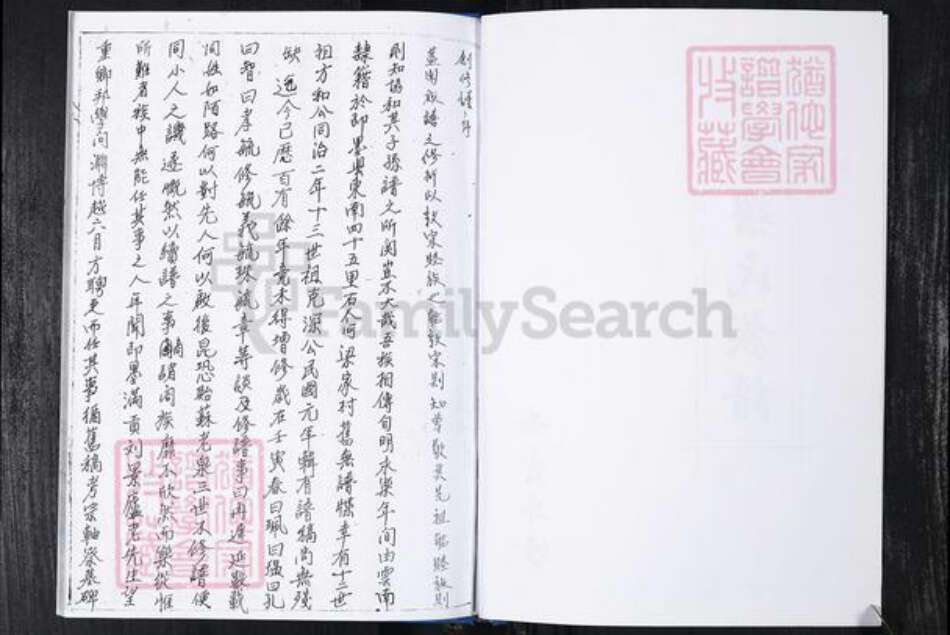 創修譜序
蓋聞族譜之修所以敦宗睦族也能敦宗則知尊敬其先祖能睦族則
則知協和其子孫譜之所関豈不大哉吾族相傳自明永樂年間由雲南
隸籍於即墨縣東南四十五里石人河梁家村舊無譜牒幸有十二世
祖方和公同治二年十三世祖克深公民國元年輯有譜稿尚無殘
缺迄今已歷百有餘年竟未得增修歲在壬寅春曰珮曰溫曰孔
曰智曰孝毓修毓義毓珠毓章等談及修譜事曰再遲延數載
同姓如陌路何以對先人何以啟後昆恐貽蘇老泉三世不修譜便
同小人之譏遂慨然以續譜之事商諸闔族靡不欣然而樂從惟
所難者族中無能任其事之人年聞即墨滿貢刘景廬老先生望
重鄉邦學問淵博越六月方聘之而任其事搞舊稿考宗軸察墓碑
猶他家
譜學會
收藏
猶他家
譜學會
收藏
FamilySearch